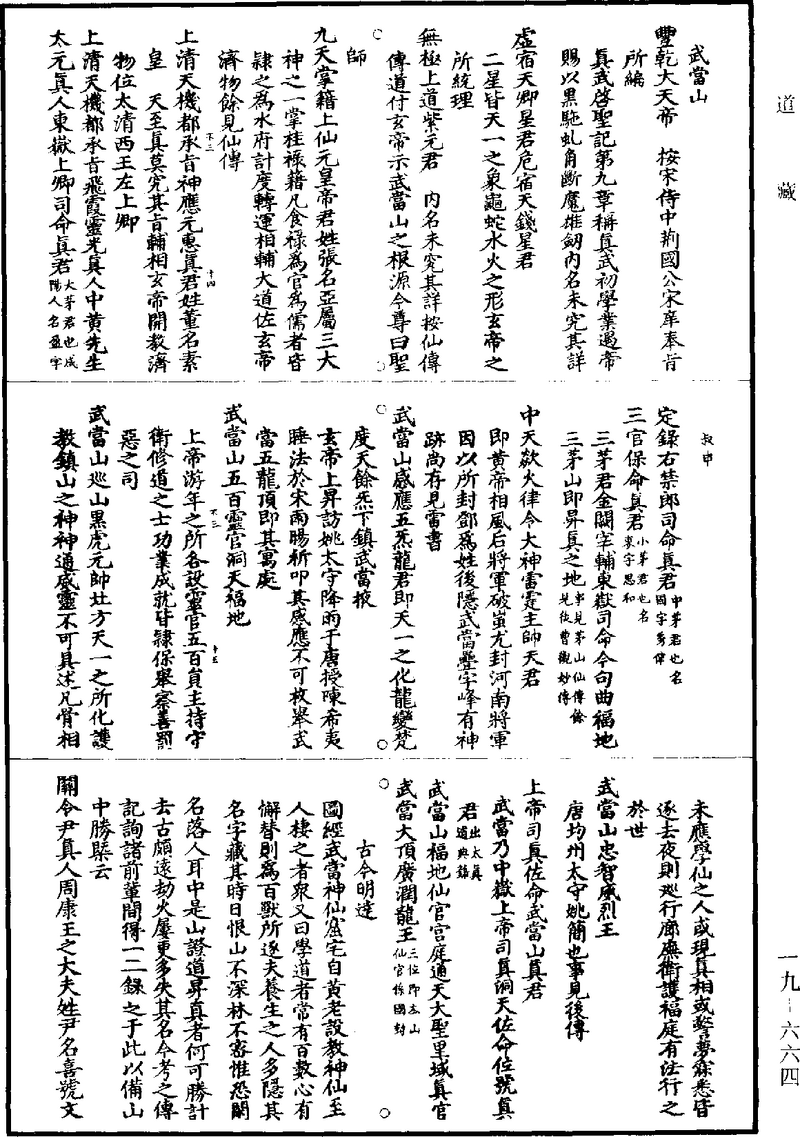 道藏
武當山
豐乾大天帝　按宋侍中荊國公宋庠奉旨
所編
真武啓聖記第九章稱真武初學業遇帝
賜以黑駞虬角斷魔雄劒內名未究其詳
虛宿天卿星君危宿天錢星君
二星皆天一之象龜蛇水火之形玄帝之
所統理
無極上道紫元君　內名未究其詳按仙傳
傳道付玄帝示武當山之根源今尊曰聖
師
九天掌籍上仙元皇帝君姓張名亞屬三大
神之一掌桂祿籍凡食祿為官為儒者皆
隸之為水府計度轉運相輔大道佐玄帝
濟物餘見仙傳
不三　十四
上清天機都承旨神應元惠真君姓董名素
皇　天至真莫究其旨輔相玄帝開教濟
物位太清西王左上卿
上清天機都承旨飛霞靈光真人中黃先生
太元真人東嶽上卿司命真君大茅君也咸陽人名盈字
叔申
定錄右禁郎司命真君中茅君也名固字季偉
三官保命真君小茅君也名衷字思和
三茅君金闕宰輔東嶽司命今句曲福地
三茅山即昇真之地事見茅山仙傳餘見從曹觀妙傳
中天歘火律令大神雷霆主帥天君
即黃帝相風后將軍破蚩尤封河南將軍
因以所封鄧為姓後隱武當疊字峰有神
跡尚存見雷書
武當山感應五炁龍君即天一之化龍變梵
度天餘炁下鎮武當掖
玄帝上昇訪姚太守降雨于唐授陳希夷
睡法於宋雨暘祈叩其感應不可枚舉武
當五龍頂即其寓處
武當山五百靈官洞天福地
不三　十五
上帝游年之所各設靈官五百員主持守
衛修道之士功業成就皆隸保舉察善罰
惡之司
武當山巡山黑虎元帥壯方天一之所化護
教鎮山之神神通威靈不可具述凡骨相
未應學仙之人或現真相或警夢寐悉皆
逐去夜則巡行廊廡衛護福庭有法行之
於世
武當山忠智威烈王
唐均州太守姚簡也事見後傳
上帝司真佐命武當山真君
武當乃中嶽上帝司真洞天佐命位號真
君出太真道典錄
武當山福地仙官宮庭通天大聖里域真官
武當大頂廣潤龍王三位即本山仙官係國封
古今明達
圖經武當神仙窟宅自黃老設教神仙至
人棲之者眾又曰學道者常有百數心有
懈替則為百獸所逐夫養生之人多隱其
名字藏其時日恨山不深林不密惟恐聞
名落人耳中是山證道昇真者何可勝計
去古頗遠劫火屢更多失其名今考之傳
記詢諸前輩間得一二錄之于此以備山
中勝槩云
關令尹真人周康王之大夫姓尹名喜號文
一九－六六四